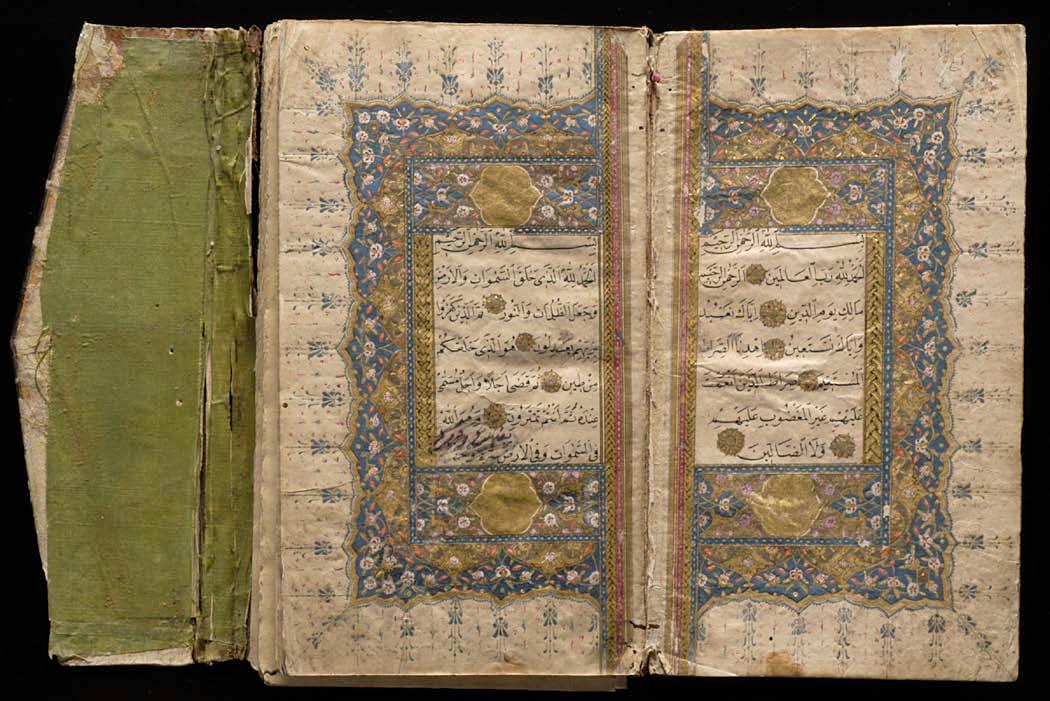 بسم الله الرحمن الرحيم
الحمد لله رب العالمين الرحمن الرحيم
مالك يوم الدين اياك نعبد
واياك نستعين اهدنا الصراط
المستقيم صراط الذين انعمت
عليهم غير المغضوب عليهم
ولا الضالين
بسم الله الرحمن الرحيم
الحمد لله الذي خلق السموات والارض
وجعل الظلمات والنور ثم الذين كفروا
بربهم يعدلون هو الذي خلقكم
من طين ثم قضى اجلا واجل مسمى
عنده ثم انتم تمترون وهو الله
في السموات وفي الارض